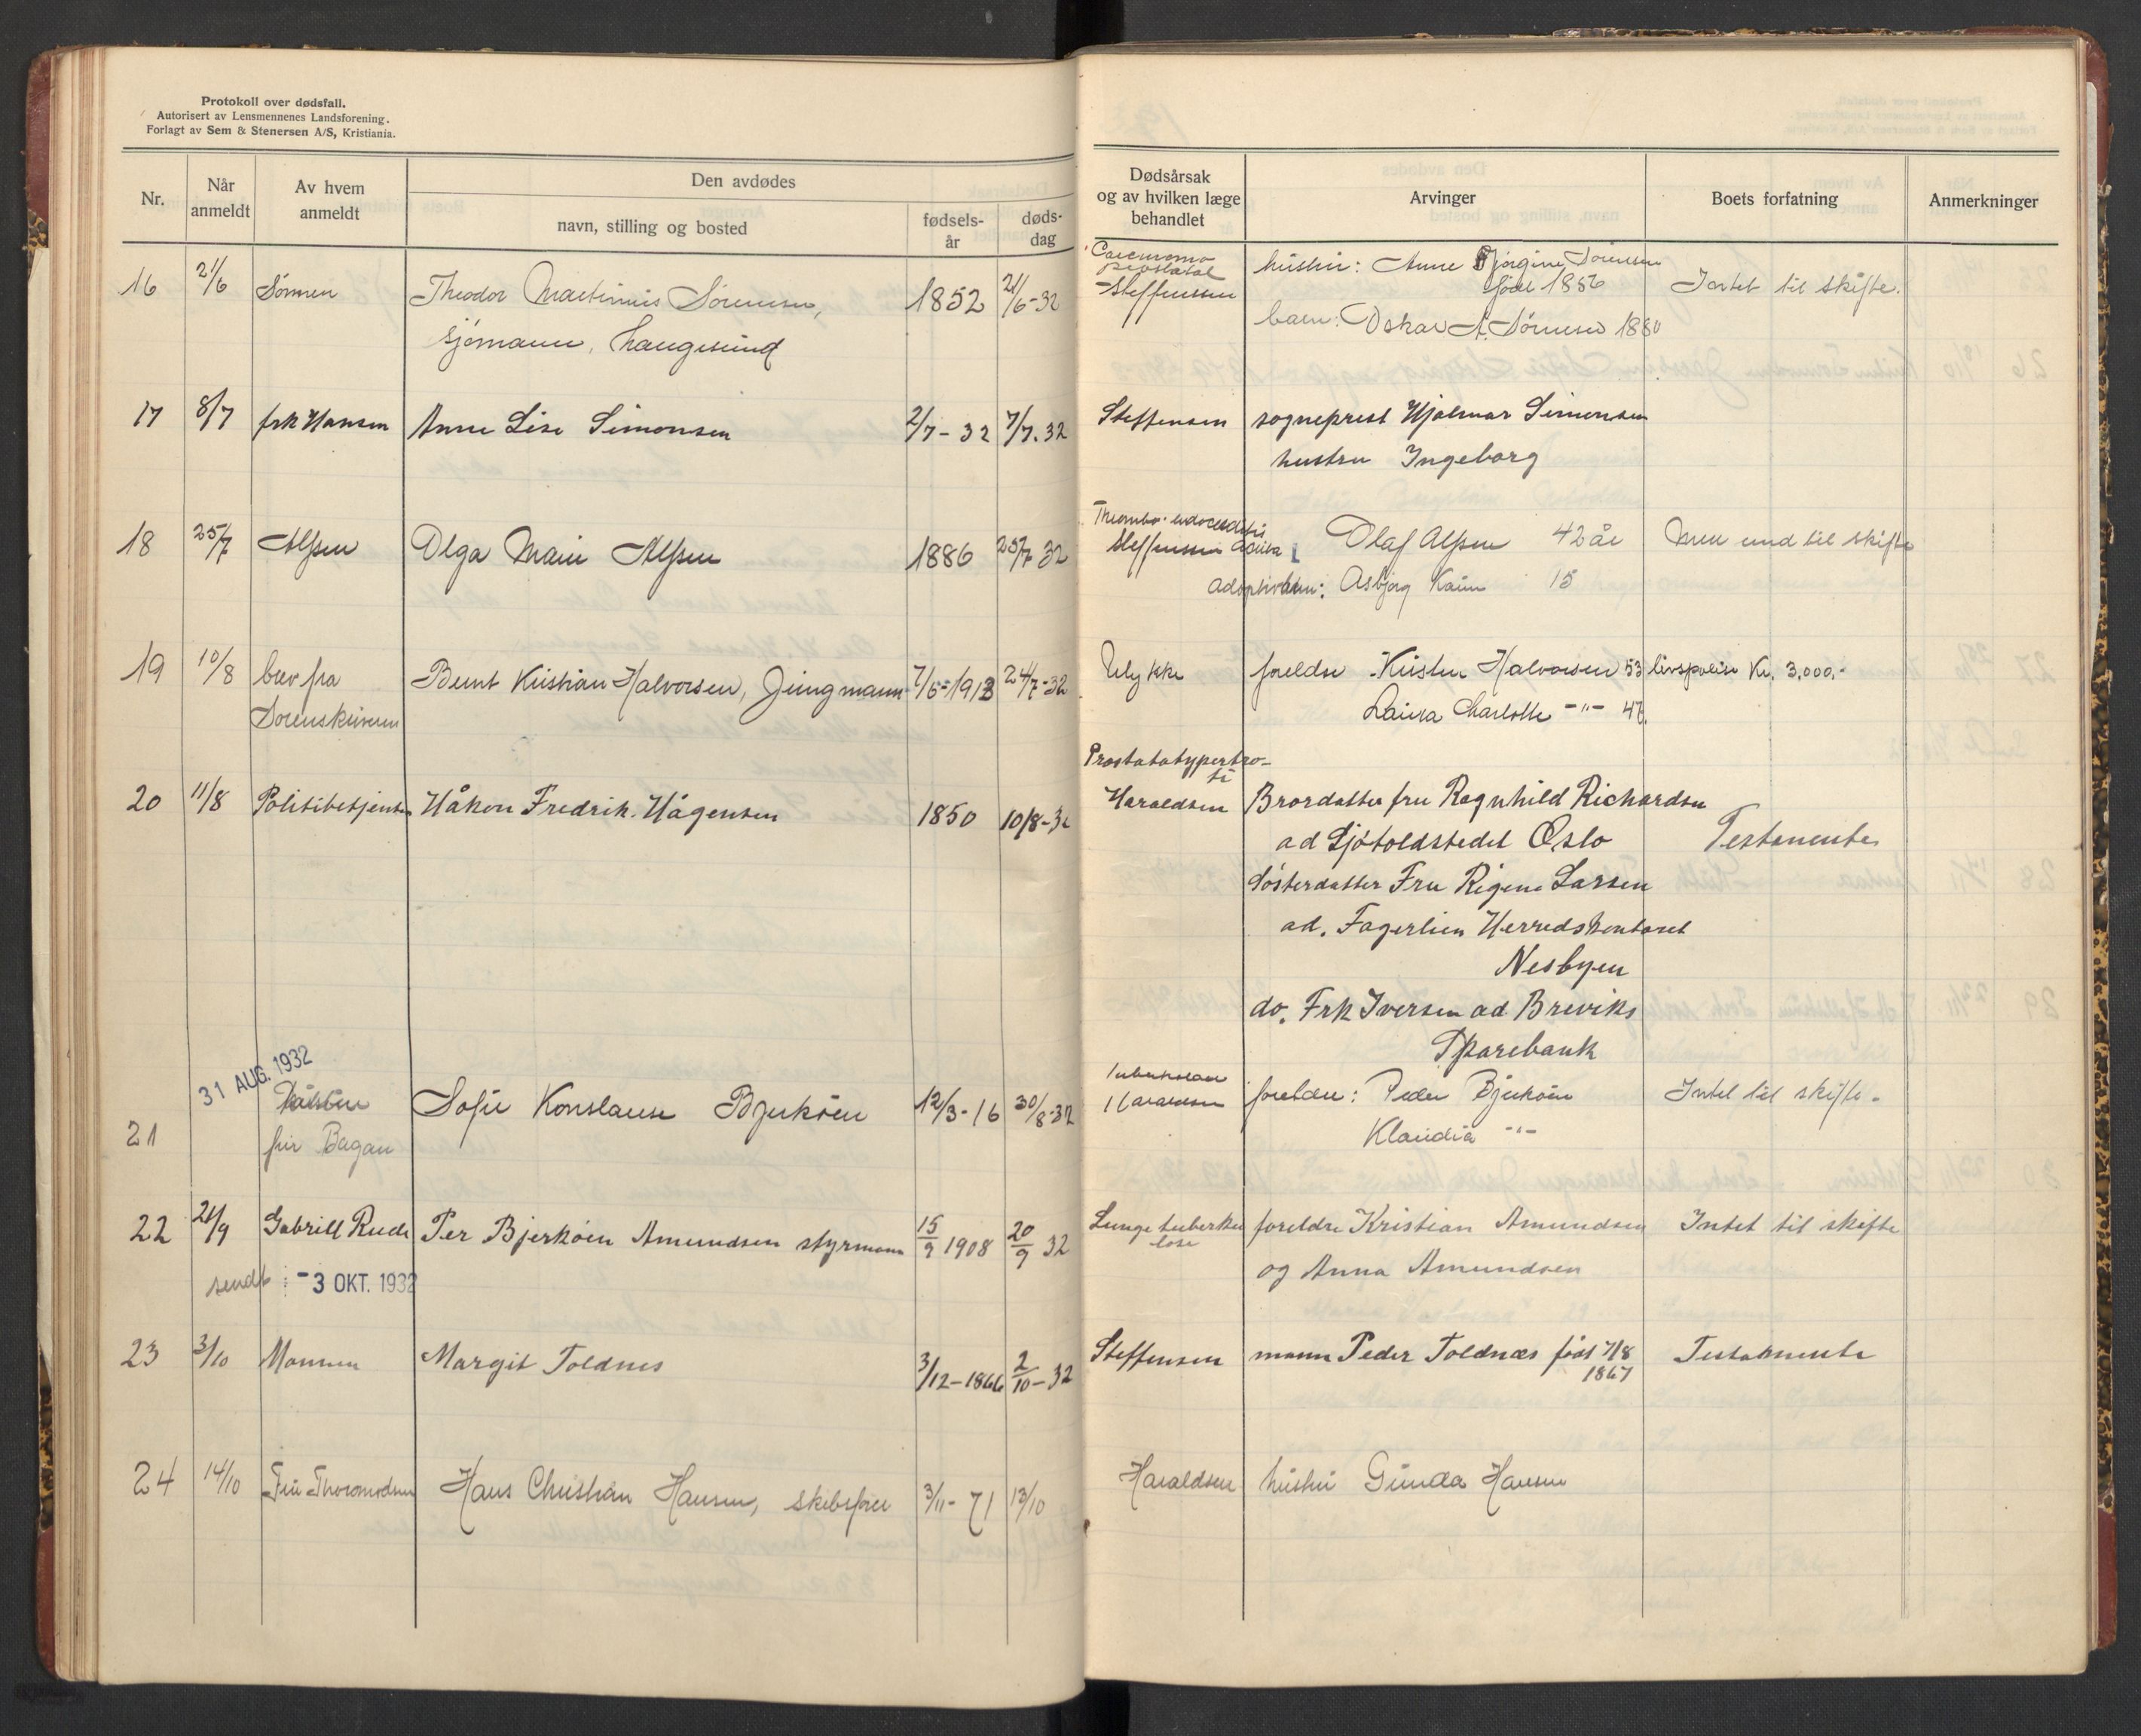 Protokoll over dødsfall.
Autorisert av Lensmennenes Landsforening.
Forlagt av Sem & Stenersen A/S, Kristiania.
Nr.
Når anmeldt
Av hvem anmeldt
Den avdødes
navn, stilling og bosted
fødsels-år
døds-dag
Dødsårsak og av hvilken læge behandlet
Arvinger
Boets forfatning
Anmerkninger
16 21/6 Sønnen Theodor Martinius Sørensen, 1852 21/6-32
sjømann, Langesund
Steffensen
hustru: Anne Jørgine Sørensen
født 1856
Intet til skifte.
barn: Oskar A. Sørensen 1880
17 8/7 frk Hansen Anne Lise Simonsen 2/7-32 7/7.32
Steffensen sogneprest Hjalmar Simonsen
hustru Ingeborg
18 25/7 Alfsen Olga Marie Alfsen 1886 25/7 32
Steffensen
Olaf Alfsen 42 år
Adoptivbarn: Asbjørg Karin 15
19 10/8 brev fra Bernt Kristian Halvorsen, Jungmann 7/6-1913 24/7-32
Sorenskriveren
Ulykke foreldre Kristen Halvorsen 53 livspolise Kr. 3.000.-
Laura Charlotte -"- 47.
20 11/8 Politibetjenten Håkon Fredrik Hågensen 1850 10/8-32
Prostatahypertro-
fi
Haraldsen Brordatter fru Ragnhild Richardsen
ad Sjøtoldstedet Oslo
Testamente
Søsterdatter Fru Regine Larsen
ad. Fagerlien Herredskontoret
Nesbyen
do. Frk Iversen ad. Breviks
Sparebank
31 AUG. 1932
21
fru Bagan
Sofie Konstanse Bjerkøen 12/3-16 30/8-32
Tuberkulose
Haraldsen foreldre: Peder Bjerkøen Intet til skifte.
Klaudia -"-
22 21/9 Gabriell Rude Per Bjerkøen Amundsen styrmann 15/9 1908 20/9 32
sendt: -3 OKT. 1932
Lungetuberku
lose
foreldre Kristian Amundsen Intet til skifte
og Anna Amundsen
23 3/10 Mannen Margit Toldnes 3/12-1866 2/10-32
Steffensen mann Peder Toldnæs født 7/8
1867
Testamente
24 14/10 Fru Thormodsen Hans Christian Hansen, skibsfører 3/11-71 13/10
Haraldsen hustru Gunda Hansen